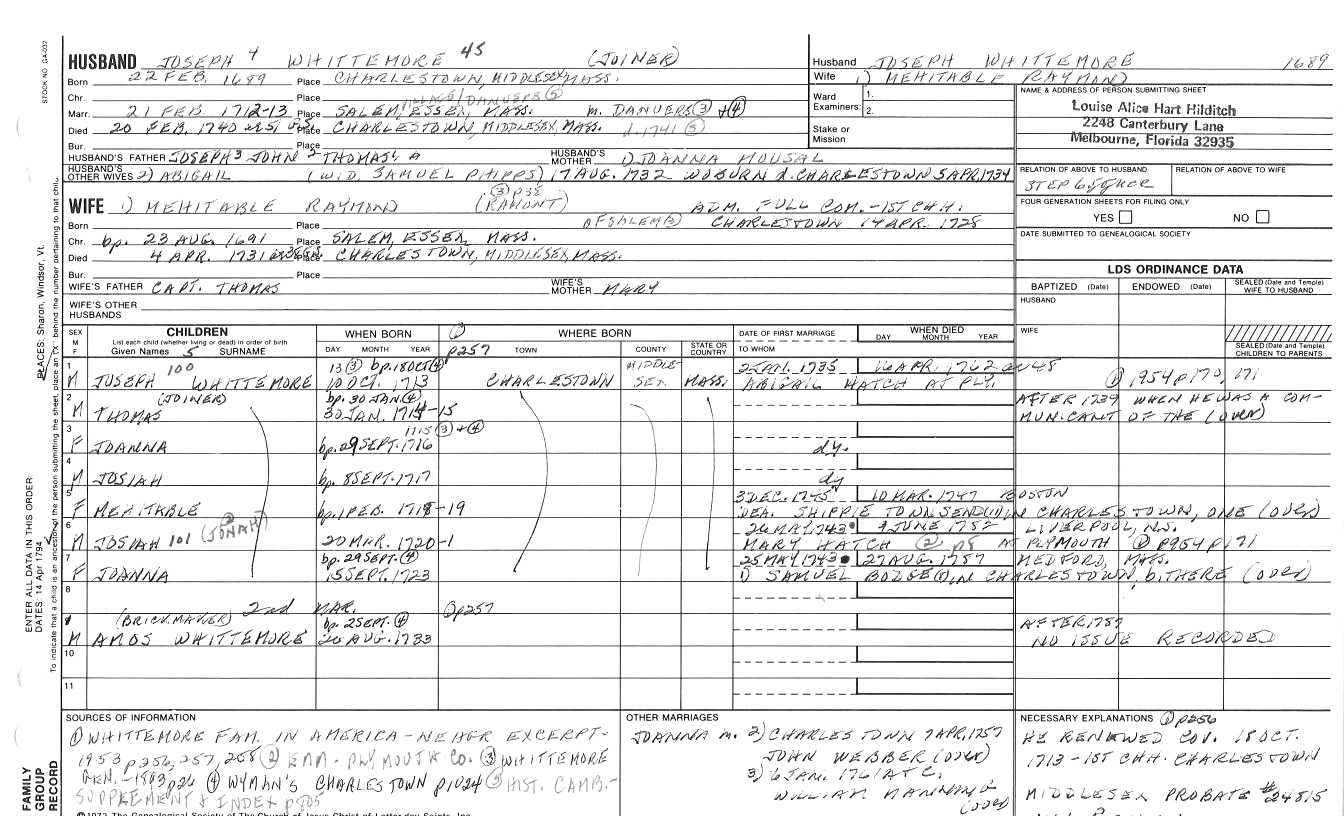 HUSBAND JOSEPH 4 WHITTEMORE 45 (JOINER)
Born 22 FEB. 1689 Place CHARLESTOWN, MIDDLESEX, MASS.
Chr. Place VILLAGE/DANVERS (5)
Marr. 21 FEB. 1712-13 Place SALEM, ESSEX, MASS. M. DANVERS (3) + (4)
Died 20 FEB. 1740 Place CHARLESTOWN, MIDDLESEX, MASS. d. 1741 (5)
Bur. Place
HUSBAND'S FATHER JOSEPH 3 JOHN 2 THOMAS HUSBAND'S MOTHER 1) JOANNA MOUSAL
HUSBAND'S OTHER WIVES 2) ABIGAIL (WID. SAMUEL PHIPPS) 17 AUG. 1732 WOBURN d. CHARLESTOWN 5 APR. 1734
(3) p38
WIFE 1) MEHITABLE RAYMOND (RAMONT) ADM. FULL COM. - 1ST CHH.
Born Place OF SALEM CHARLESTOWN 14 APR. 1728
Chr. bp. 23 AUG. 1691 Place SALEM, ESSEX, MASS.
Died 4 APR. 1731 Place CHARLESTOWN, MIDDLESEX, MASS.
Bur. Place
WIFE'S FATHER CAPT. THOMAS WIFE'S MOTHER MARY
WIFE'S OTHER HUSBANDS
Husband JOSEPH WHITTEMORE 1689
Wife 1) MEHITABLE RAYMOND
Ward Examiners: 1. 2.
Stake or Mission
NAME & ADDRESS OF PERSON SUBMITTING SHEET
Louise Alice Hart Hilditch
2248 Canterbury Lane
Melbourne, Florida 32935
RELATION OF ABOVE TO HUSBAND RELATION OF ABOVE TO WIFE
FOUR GENERATION SHEETS FOR FILING ONLY
YES NO
DATE SUBMITTED TO GENEALOGICAL SOCIETY
LDS ORDINANCE DATA
BAPTIZED (Date) ENDOWED (Date) SEALED (Date and Temple) WIFE TO HUSBAND
HUSBAND
WIFE
SEALED (Date and Temple) CHILDREN TO PARENTS
SEX M F
CHILDREN
List each child (whether living or dead) in order of birth
Given Names SURNAME
WHEN BORN
DAY MONTH YEAR
(1) p257
WHERE BORN
TOWN COUNTY STATE OR COUNTRY
DATE OF FIRST MARRIAGE
TO WHOM
WHEN DIED
DAY MONTH YEAR
1 100 13 (3) bp. 18 OCT (4) MIDDLE- 1735 16 APR. 1762
M JOSEPH WHITTEMORE 10 OCT. 1713 CHARLESTOWN SEX MASS. ABIGAIL HATCH AT PLY. (1) 1954 p170, 171
2 (JOINER) bp. 30 JAN (4) AFTER 1739 WHEN HE WAS A COM-
M THOMAS 30 JAN. 1714-15 MUNICANT OF THE (OVER)
3 1715 (3) + (4)
F JOANNA bp. 29 SEPT. 1716 dy.
4
M JOSIAH bp. 8 SEPT. 1717 dy
5 3 DEC. 1745 10 MAR. 1747 BOSTON
F MEHITABLE bp. 1 FEB. 1718-19 DEA. SHIPPIE TOWNSEND (1), IN CHARLESTOWN, ONE (OVER)
6 26 MAY 1743 9 JUNE 1752 LIVERPOOL, N.S.
M JOSIAH 101 (JONAH) 20 MAR. 1720-1 MARY HATCH (2) p8 AT PLYMOUTH (1) p954 p171
7 bp. 29 SEPT. (4) 25 MAY 1743 27 AUG. 1757 MEDFORD, MASS.
F JOANNA 15 SEPT. 1723 1) SAMUEL BODGE (1), IN CHARLESTOWN, b. THERE (OVER)
8
(BRICKMAKER) 2nd MAR. (1) p257
bp. 2 SEPT. (4) AFTER 1757
M AMOS WHITTEMORE 26 AUG. 1733 NO ISSUE RECORDED
10
11
SOURCES OF INFORMATION
(1) WHITTEMORE FAM. IN AMERICA - NEHGR EXCERPT-
1953 p256, 257, 258 (2) FAM. PLYMOUTH CO. (3) WHITTEMORE
GEN. - 1893 p26 (4) WYMAN'S CHARLESTOWN p1024 (5) HIST. CAMB.-
SUPPLEMENT & INDEX p805
OTHER MARRIAGES
JOANNA M. 2) CHARLESTOWN 7 APR. 1757
JOHN WEBBER (OVER)
3) 6 JAN. 1761 AT C.
WILLIAM MANNING
(OVER)
NECESSARY EXPLANATIONS (1) p256
HE RENEWED COV. 18 OCT.
1713 - 1ST CHH. CHARLESTOWN
MIDDLESEX PROBATE #24815
STOCK NO. GA-002
ENTER ALL DATA IN THIS ORDER
DATES 14 Apr 1794
PLACES: Sharon, Windsor, Vt.
FAMILY GROUP RECORD